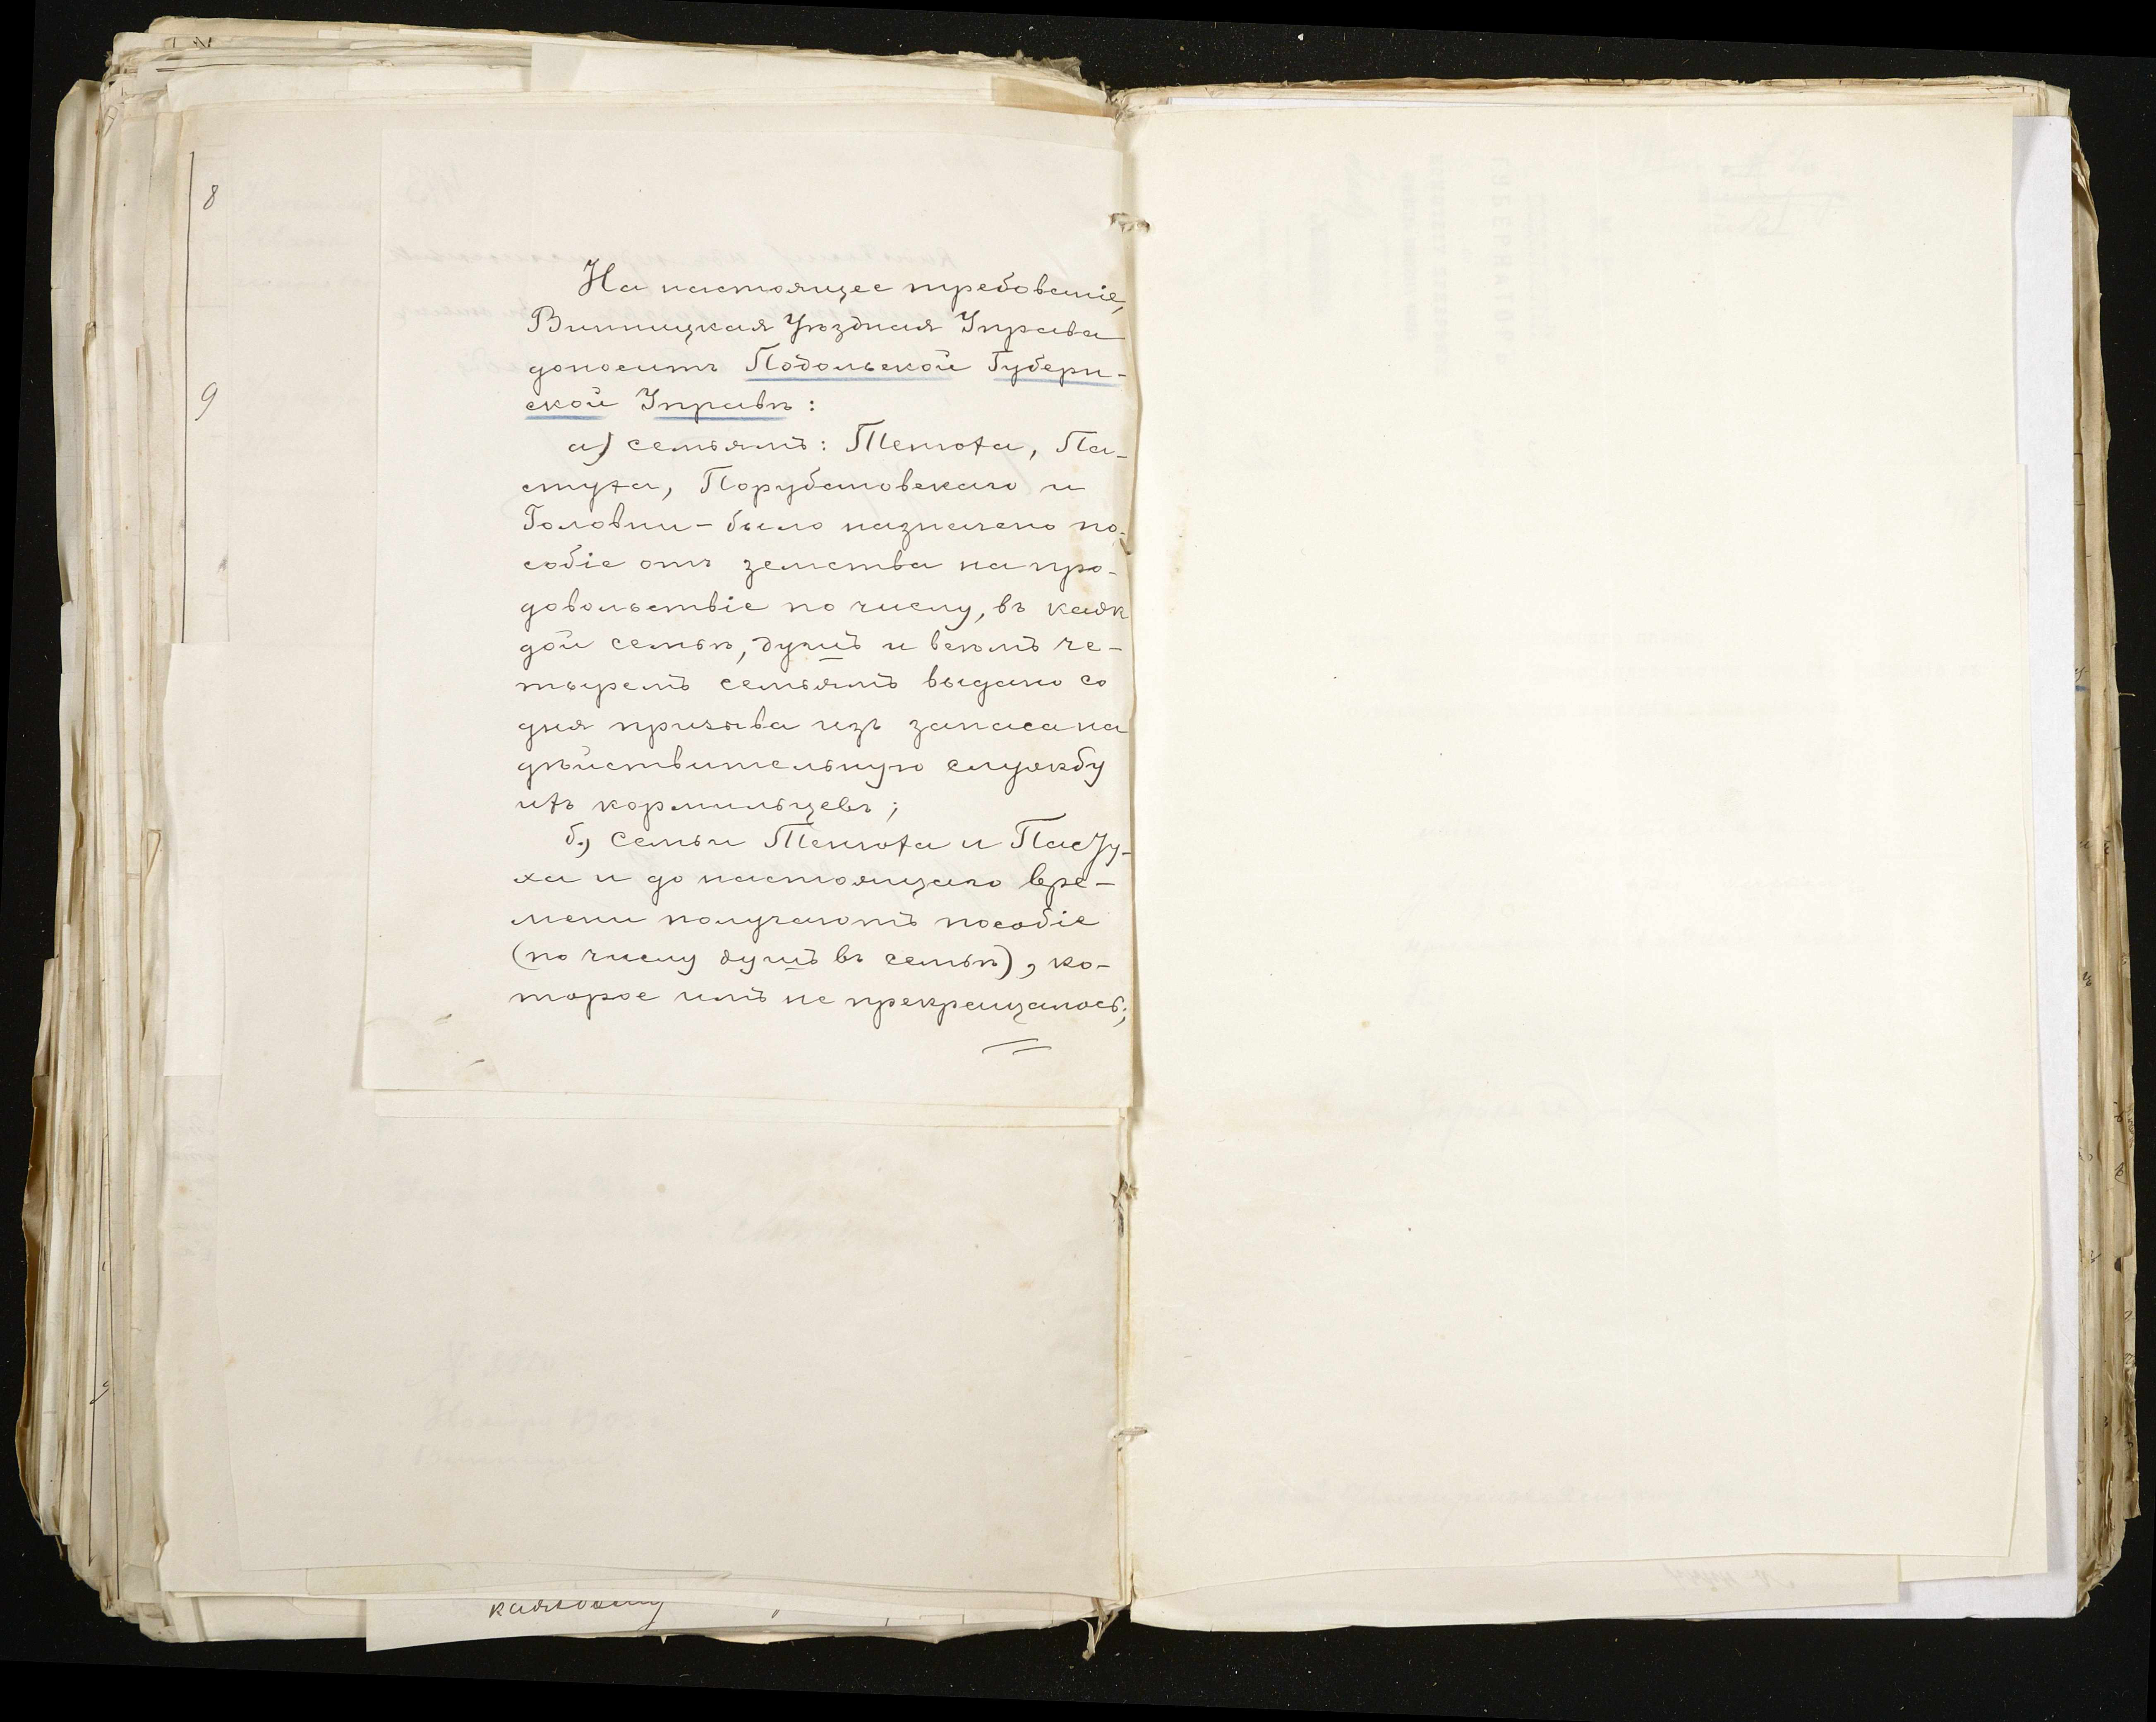 8
9
На настоящее требованіе,
Винницкая Уѣздная Управа
доноситъ Подольской Губерн-
ской Управѣ:
а) семьямъ: Тенюха, Па-
стуха, Порубановскаго и
Головни – было назначено по-
собіе отъ земства на про-
довольствіе по числу, въ каж
дой семьѣ, душъ и всѣмъ че-
тыремъ семьямъ выдано со
дня призыва изъ запаса на
дѣйствительную службу
ихъ кормильцевъ;
б) семьи Тенюха и Пасту-
ха и до настоящаго вре-
мени получаютъ пособіе
(по числу душъ въ семьѣ), ко-
торое имъ не прекращалось;